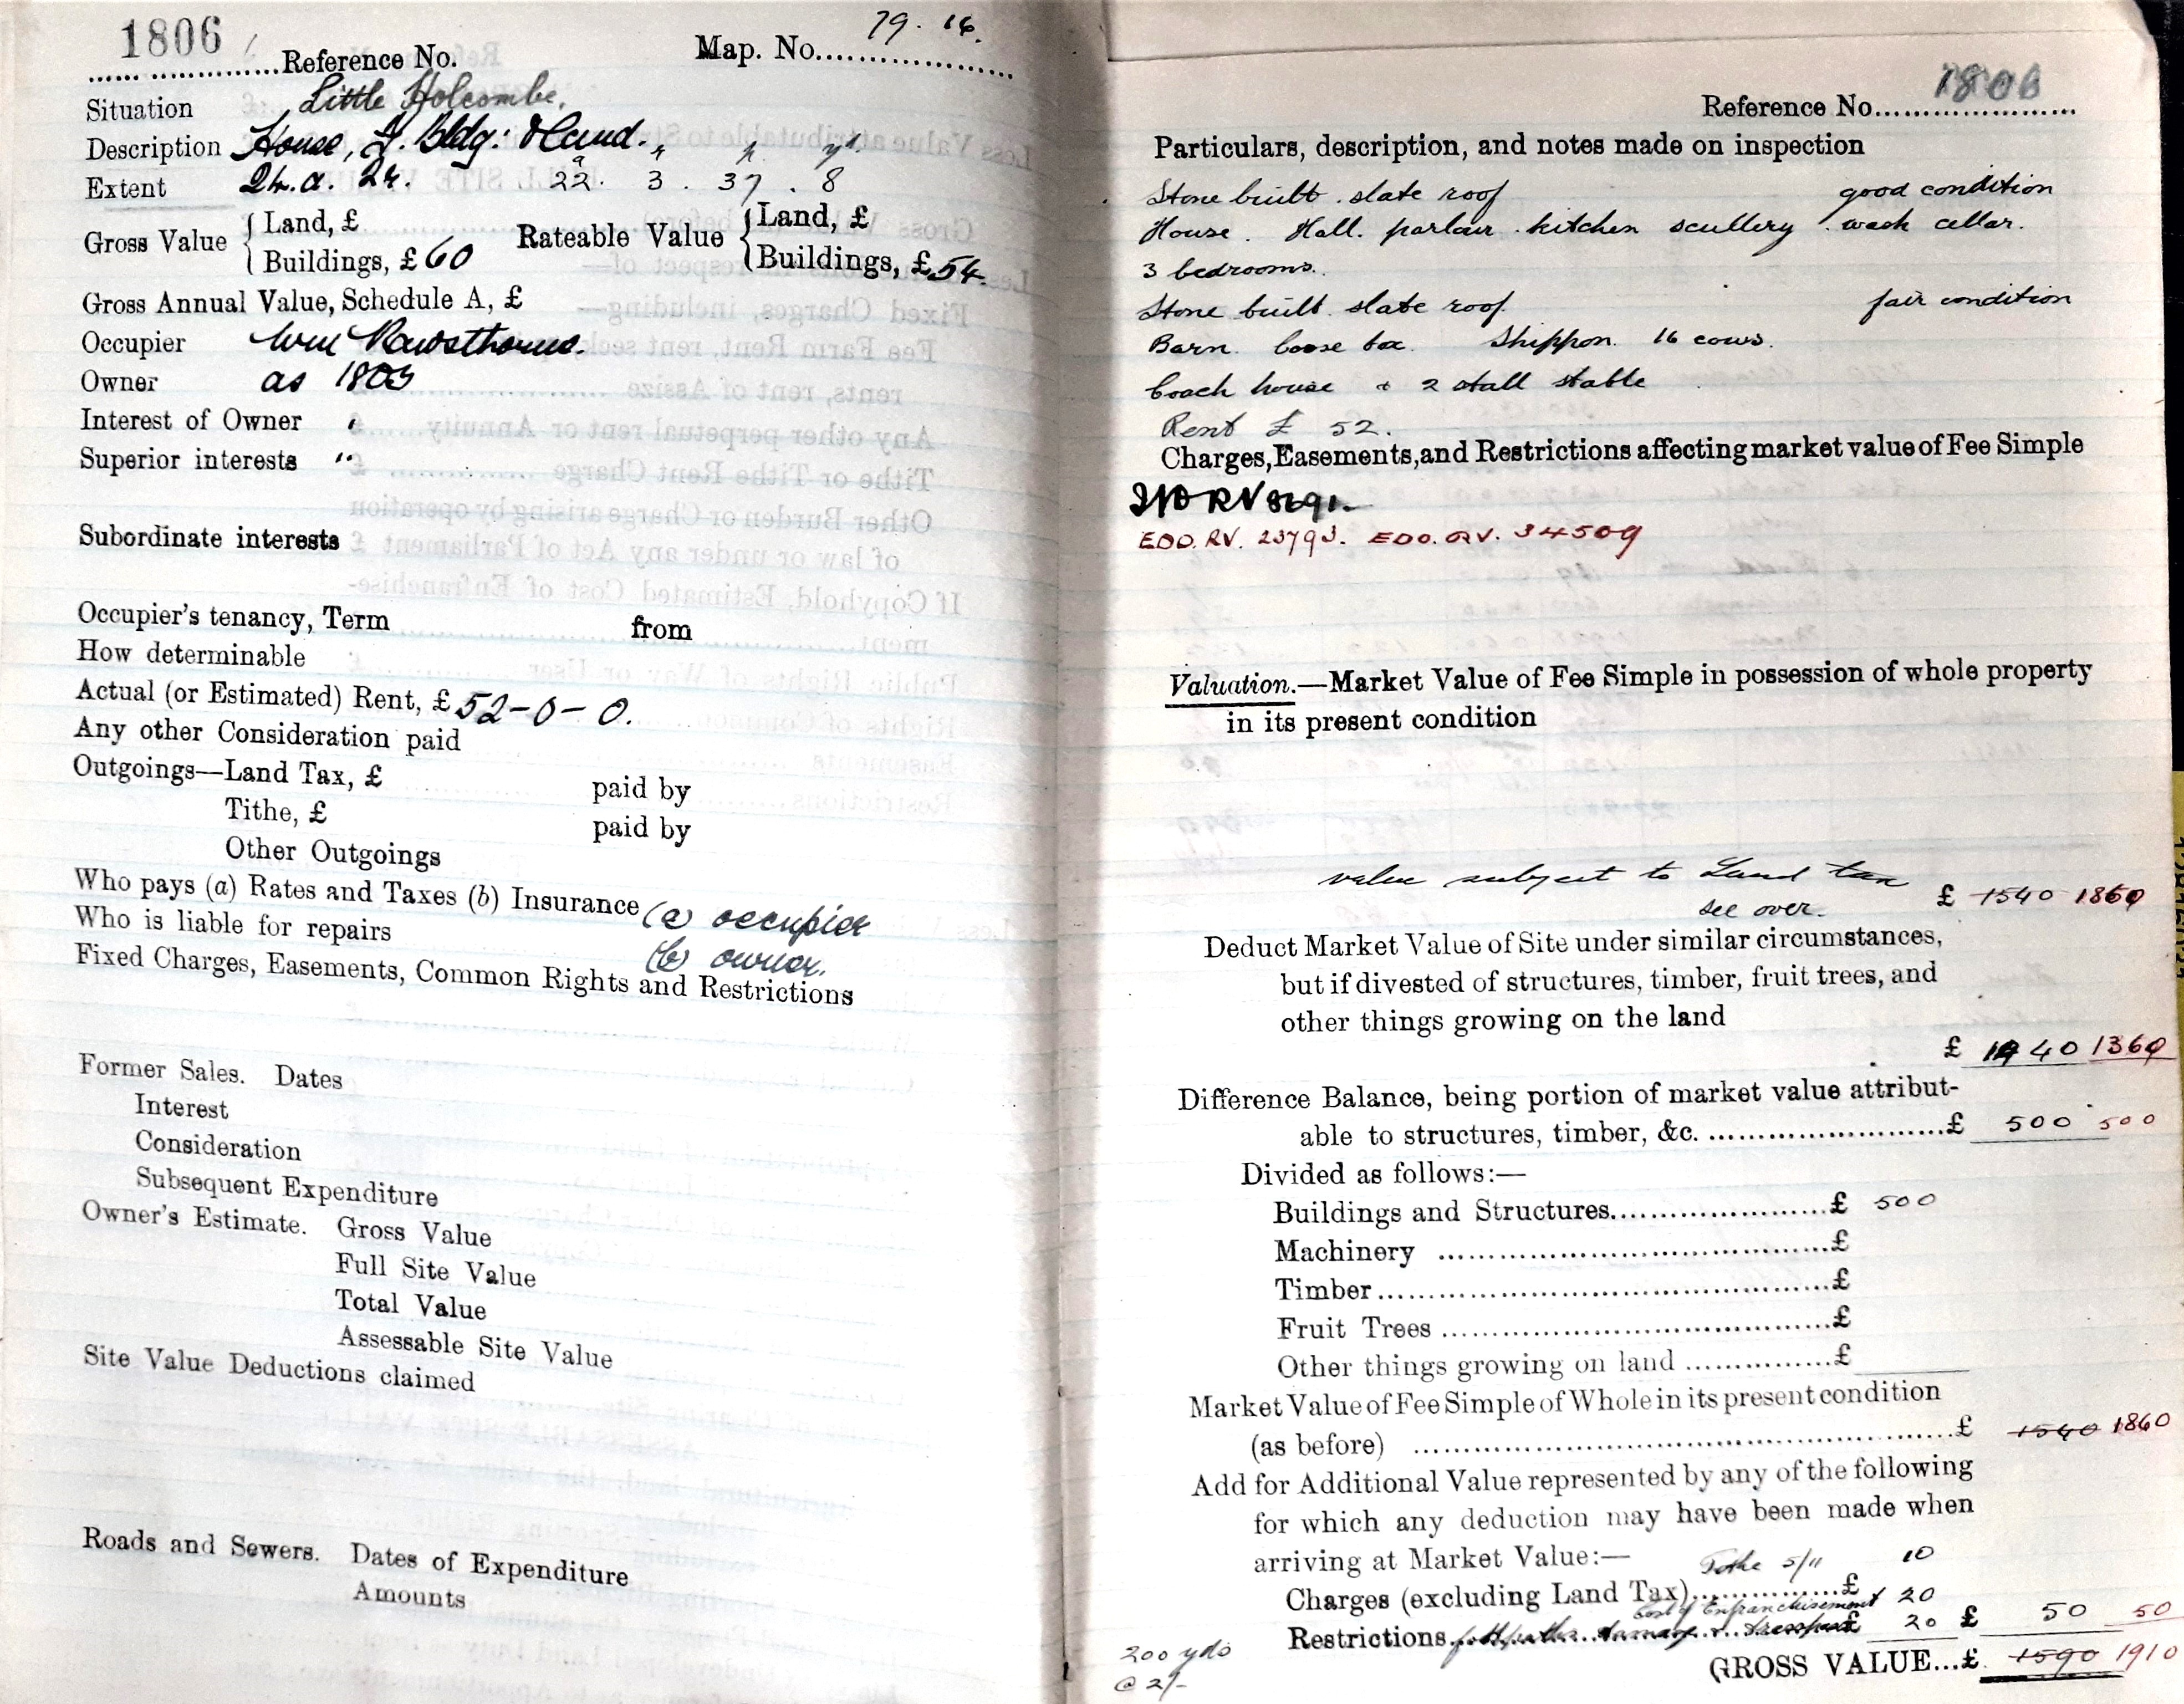 1806
Reference No. Map. No. 79. 16.
Situation Little Holcombe.
Description House, F. Bldg: & land.
a r p yd.
Extent 24.a. 2r. 22. 3. 37. 8
Gross Value { Land, £ Rateable Value { Land, £
Buildings, £60 Buildings, £54.
Gross Annual Value, Schedule A, £
Occupier Wm Rawsthorne.
Owner as 1803
Interest of Owner "
Superior interests "
Subordinate interests
Occupier's tenancy, Term from
How determinable
Actual (or Estimated) Rent, £52-0-0.
Any other Consideration paid
Outgoings—Land Tax, £ paid by
Tithe, £ paid by
Other Outgoings
Who pays (a) Rates and Taxes (b) Insurance (a) occupier
Who is liable for repairs (b) owner.
Fixed Charges, Easements, Common Rights and Restrictions
Former Sales. Dates
Interest
Consideration
Subsequent Expenditure
Owner's Estimate. Gross Value
Full Site Value
Total Value
Assessable Site Value
Site Value Deductions claimed
Roads and Sewers. Dates of Expenditure
Amounts
Reference No. 1806
Particulars, description, and notes made on inspection
Stone built. slate roof good condition
House. Hall. parlour. kitchen scullery. wash cellar.
3 bedrooms.
Stone built. slate roof. fair condition
Barn. loose box. Shippon. 16 cows.
Coach house + 2 stall stable
Rent £ 52.
Charges, Easements, and Restrictions affecting market value of Fee Simple
EDO. RV. 23793. EDO. RV. 34509
Valuation.—Market Value of Fee Simple in possession of whole property
in its present condition
value subject to Land tax
see over. £ 1540 1860
Deduct Market Value of Site under similar circumstances,
but if divested of structures, timber, fruit trees, and
other things growing on the land
£ 1040 1360
Difference Balance, being portion of market value attribut-
able to structures, timber, &c. £ 500 500
Divided as follows:—
Buildings and Structures £ 500
Machinery £
Timber £
Fruit Trees £
Other things growing on land £
Market Value of Fee Simple of Whole in its present condition
(as before) £ 1540 1860
Add for Additional Value represented by any of the following
for which any deduction may have been made when
arriving at Market Value:— Tithe 5/11 10
Charges (excluding Land Tax) £
Cost of Enfranchisement 20
Restrictions footpaths damage & trespass £ 20 £ 50 50
200 yds
@ 2/-
GROSS VALUE...£ 1590 1910